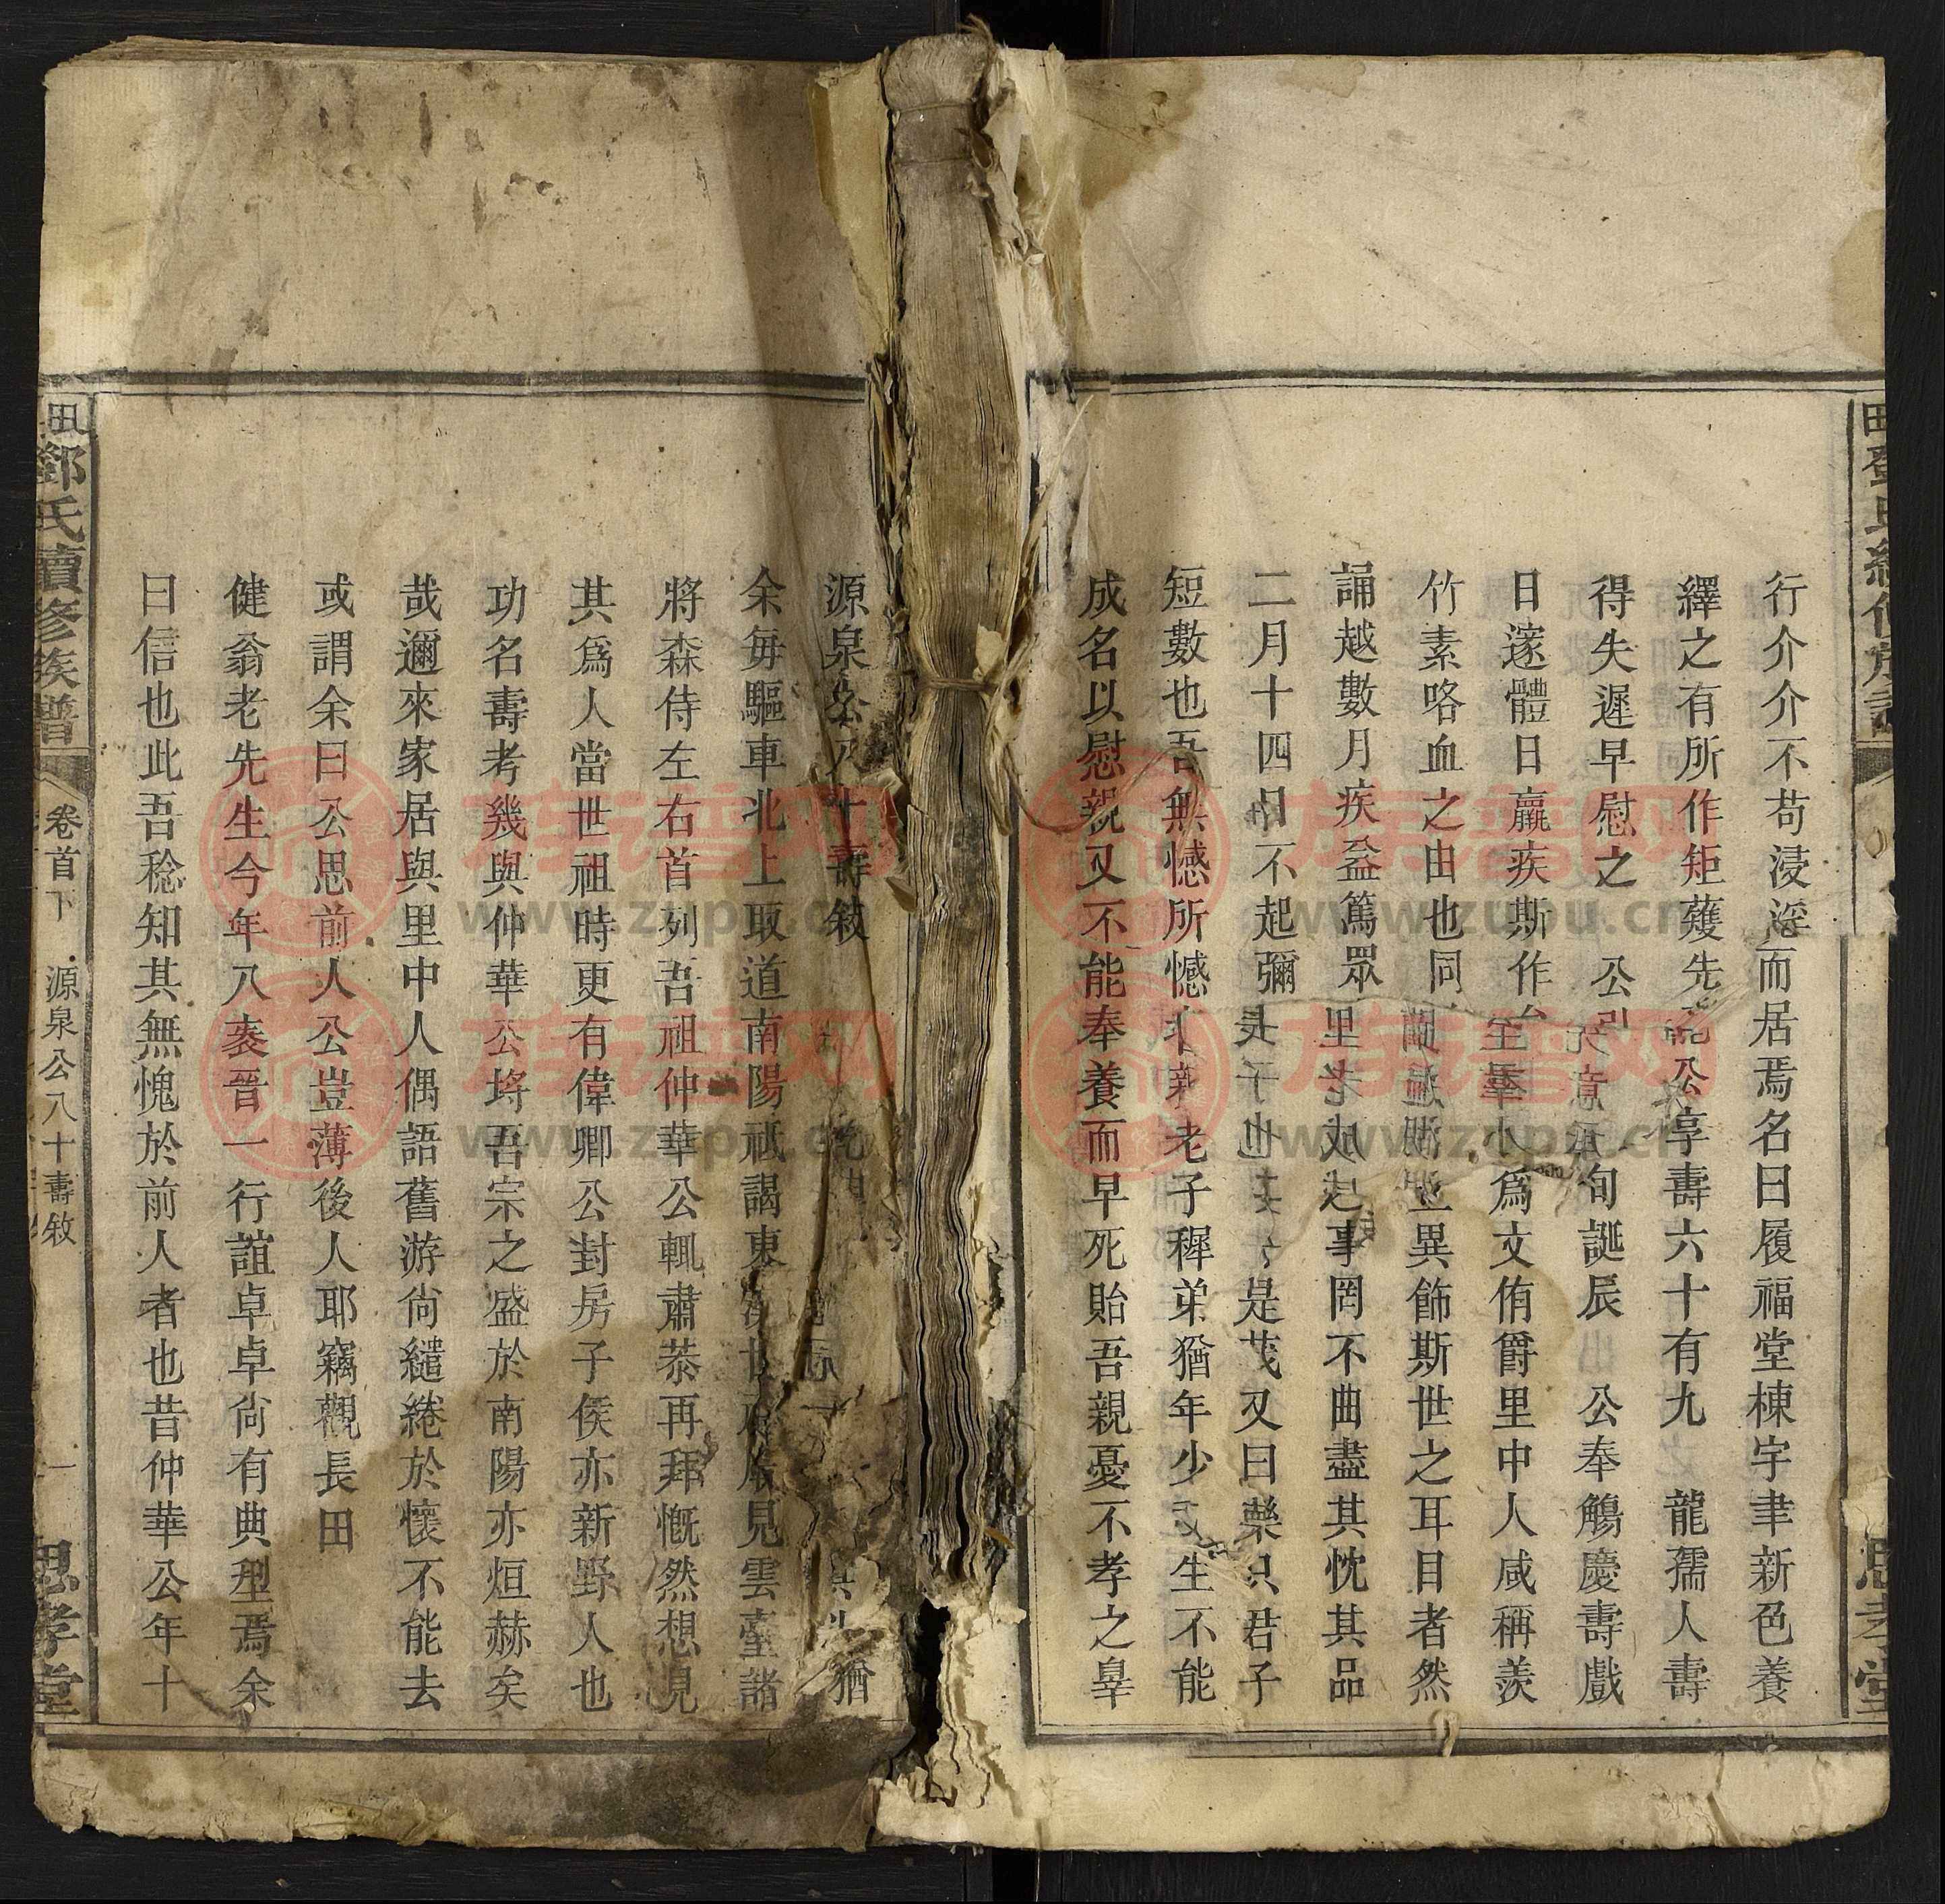 行介介不苟浸淫而居焉名曰履福堂棟宇聿新色養
繹之有所作矩蒦先公享壽六十有九 龍孺人壽
得失遲早慰之 公旬誕辰 公奉觴慶壽戲
日邃體日羸疾斯作至舉人為文侑爵里中人咸稱羨
竹素咯血之由也同異飾斯世之耳目者然
誦越數月疾益篤眾里老成事罔不曲盡其忱其品
二月十四日不起彌子也是茂又曰樂只君子
短數也吾無憾所憾老子穉弟猶年少生不能
成名以慰親又不能奉養而早死貽吾親憂不孝之辠
源泉公八十壽敘
猶
余每驅車北上取道南陽祗謁東漢世廟見雲臺諸
將森侍左右首列吾祖仲華公輒肅恭再拜慨然想見
其爲人當世祖時更有偉卿公封房子侯亦新野人也
功名壽考幾與仲華公埒吾宗之盛於南陽亦烜赫矣
哉邇來家居與里中人偶語舊游尙繾綣於懷不能去
或謂余曰公思前人公豈薄後人耶竊觀長田
健翁老先生今年八袠晉一行誼卓卓尙有典型焉余
曰信也此吾稔知其無愧於前人者也昔仲華公年十
田鄧氏續修族譜 卷首下 源泉公八十壽敘 一 思孝堂
族譜网
www.zupu.cn